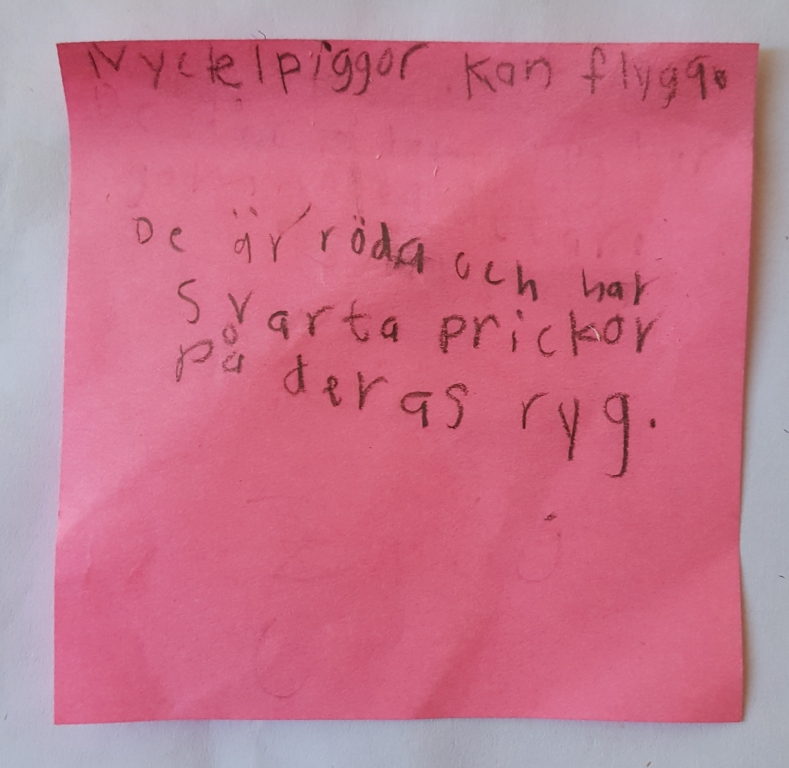 Nyckelpiggor kan flyga.
De är röda och har
svarta prickor
på deras ryg.